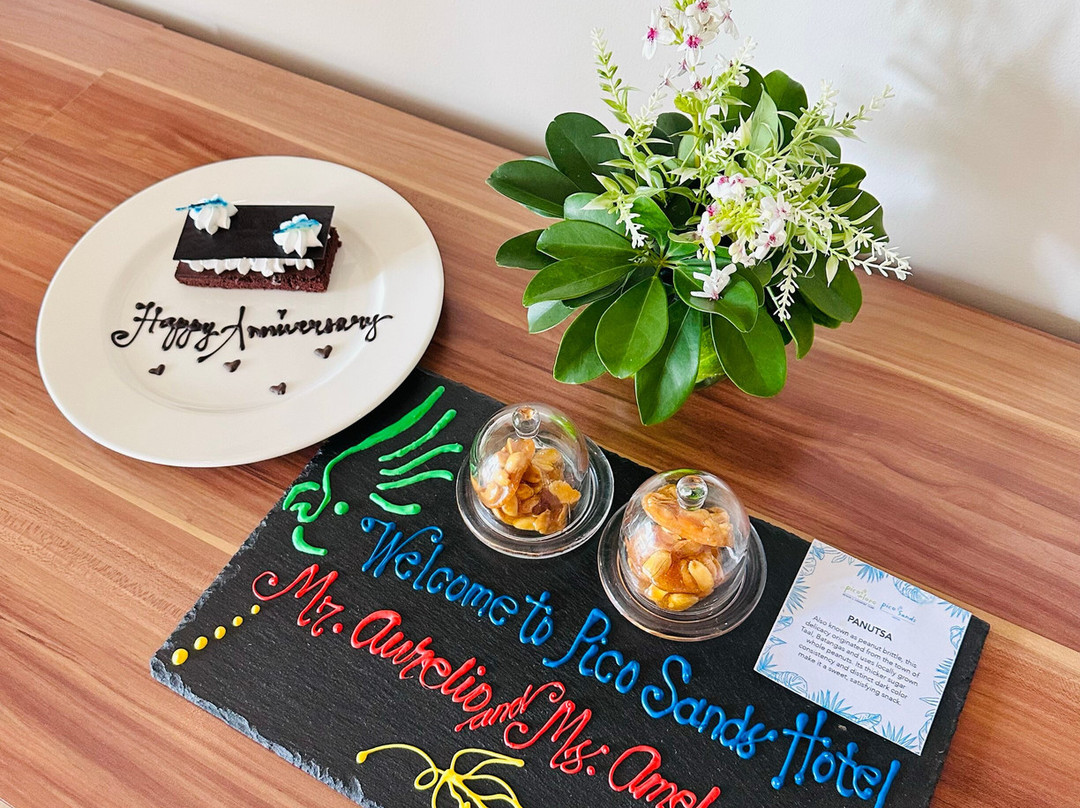 Happy Anniversary
Welcome to Pico Sands Hotel
Mr. Aurelio and Ms. Amel
pico sands
PANUTSA
Also known as peanut brittle, this
delicacy originated from the town of
Taal, Batangas and uses locally grown
whole peanuts. Its thicker sugar
consistency and distinct dark color
make it a sweet, satisfying snack.